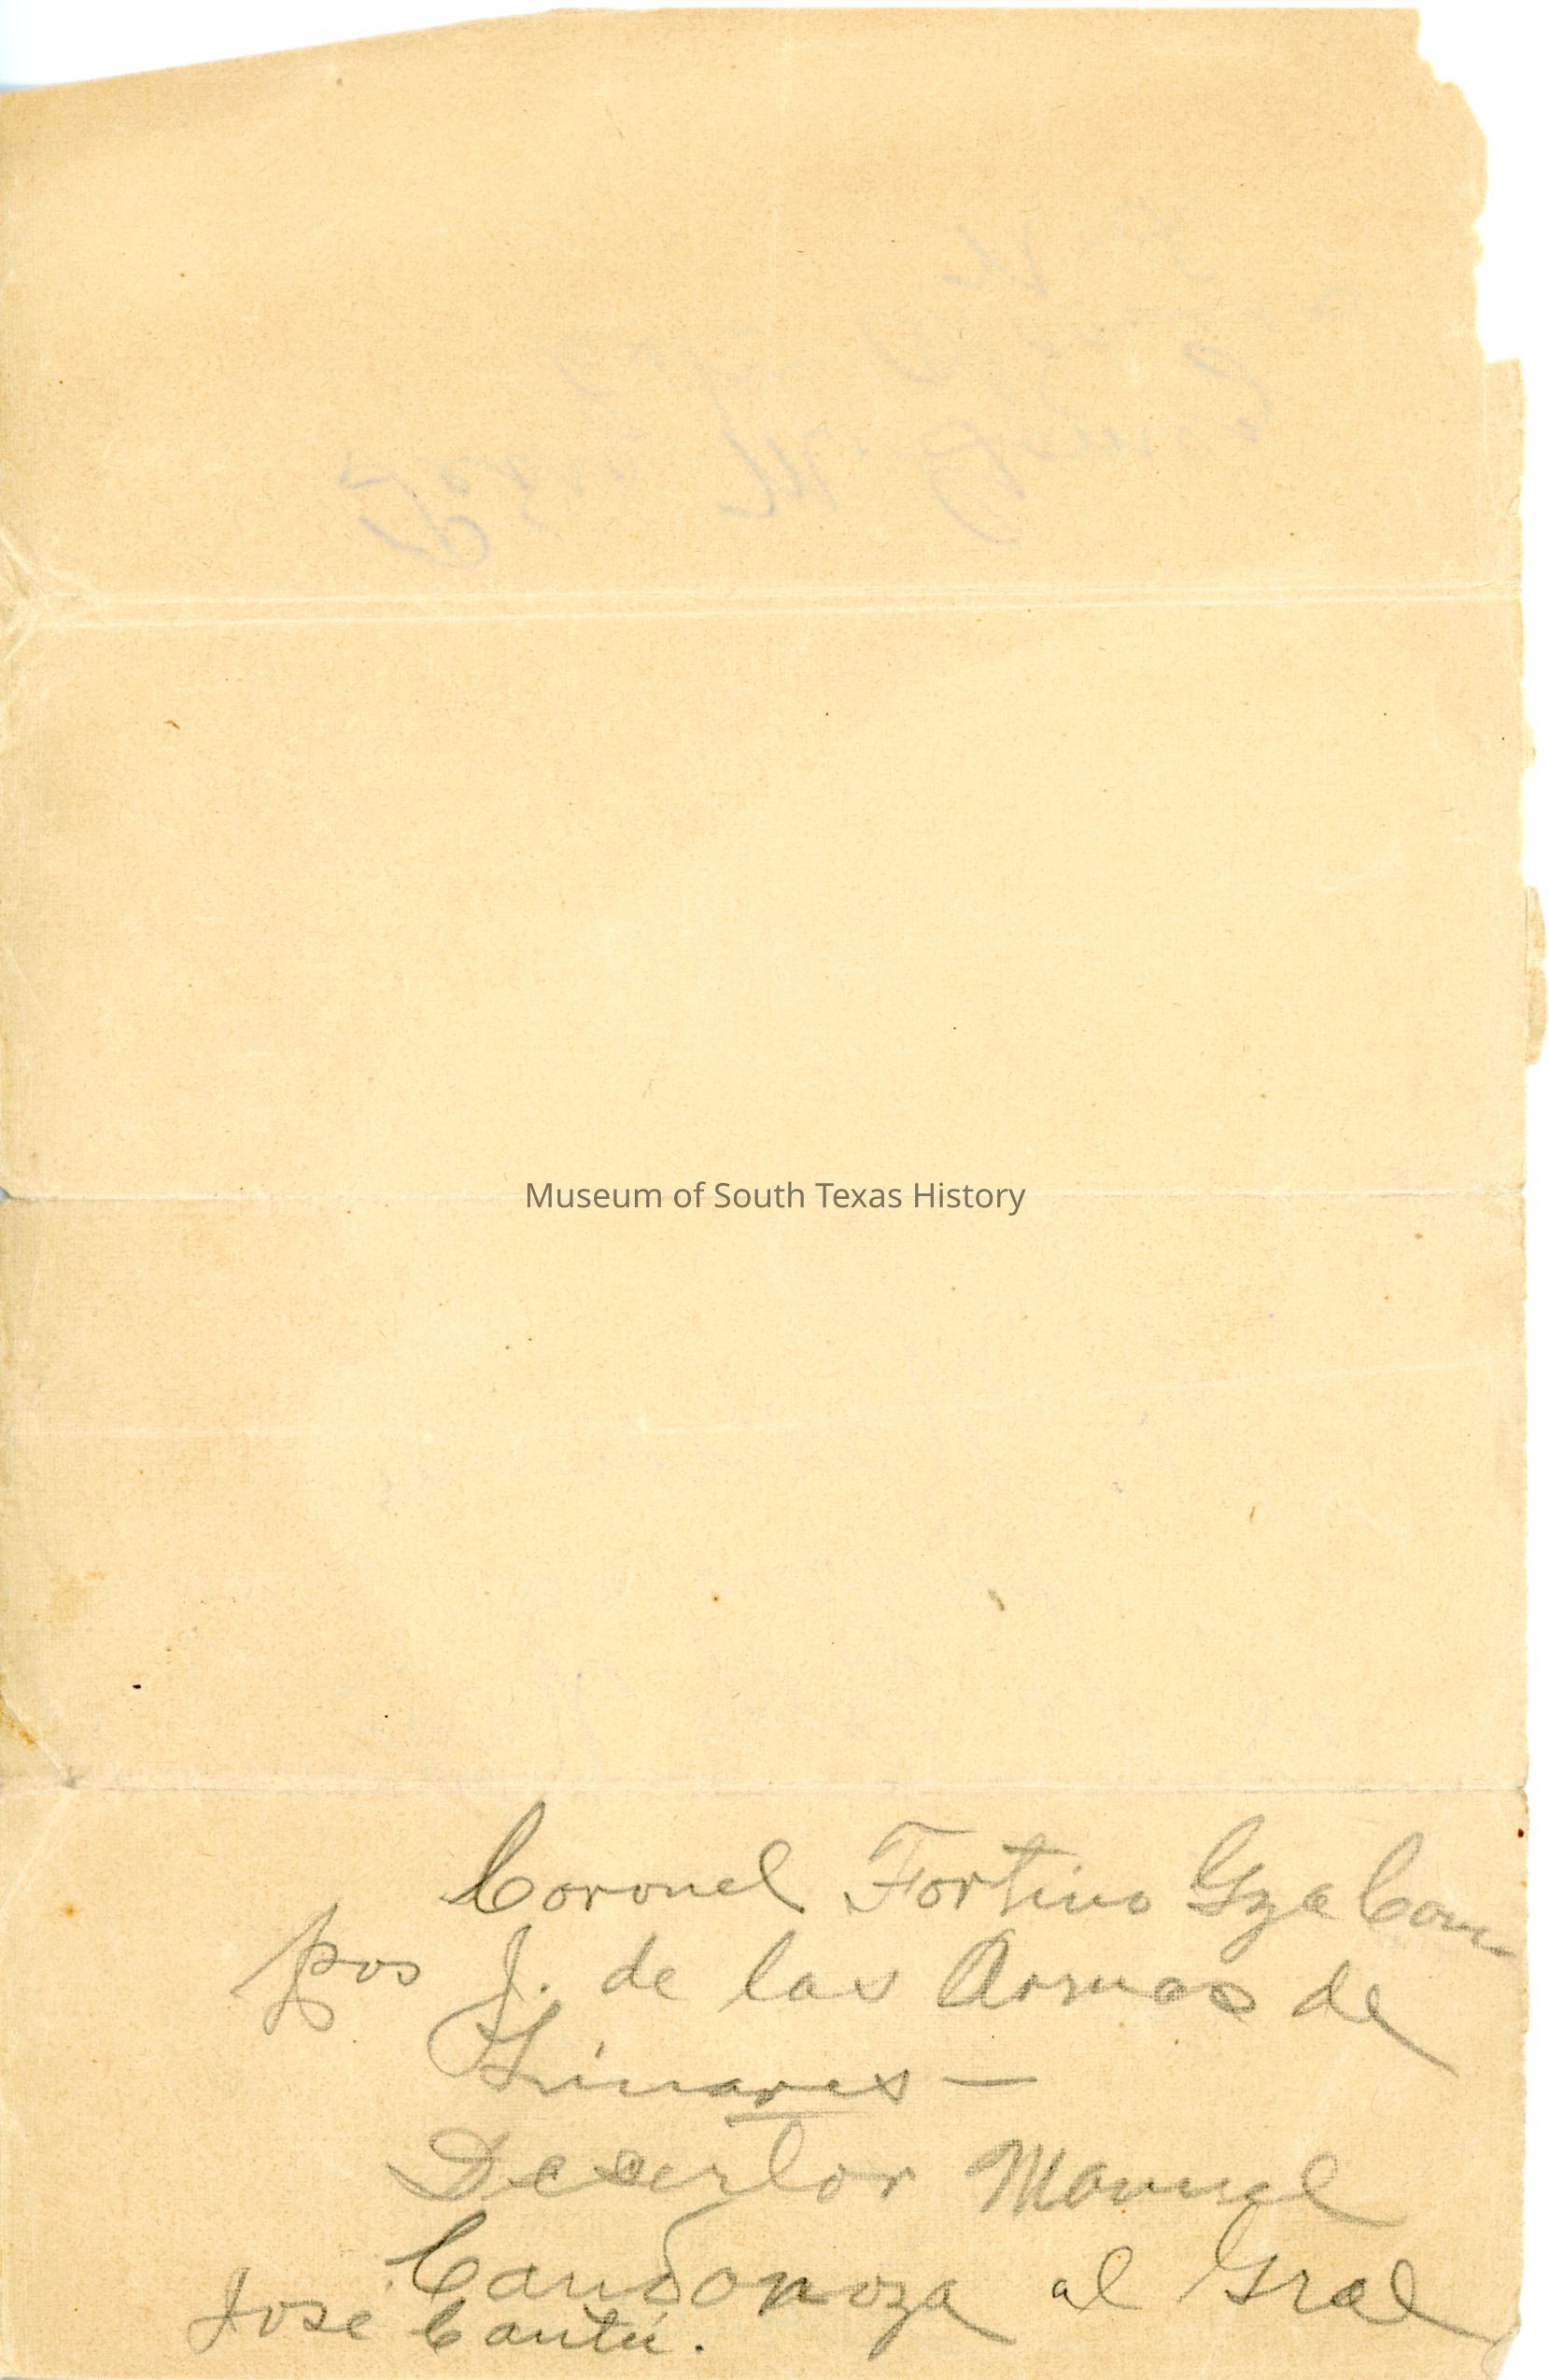 Museum of South Texas History
Coronel Fortino Gza Cam
pos J. de las Armas de
Linares —
Desertor Manuel
al Gral
José Cantú.